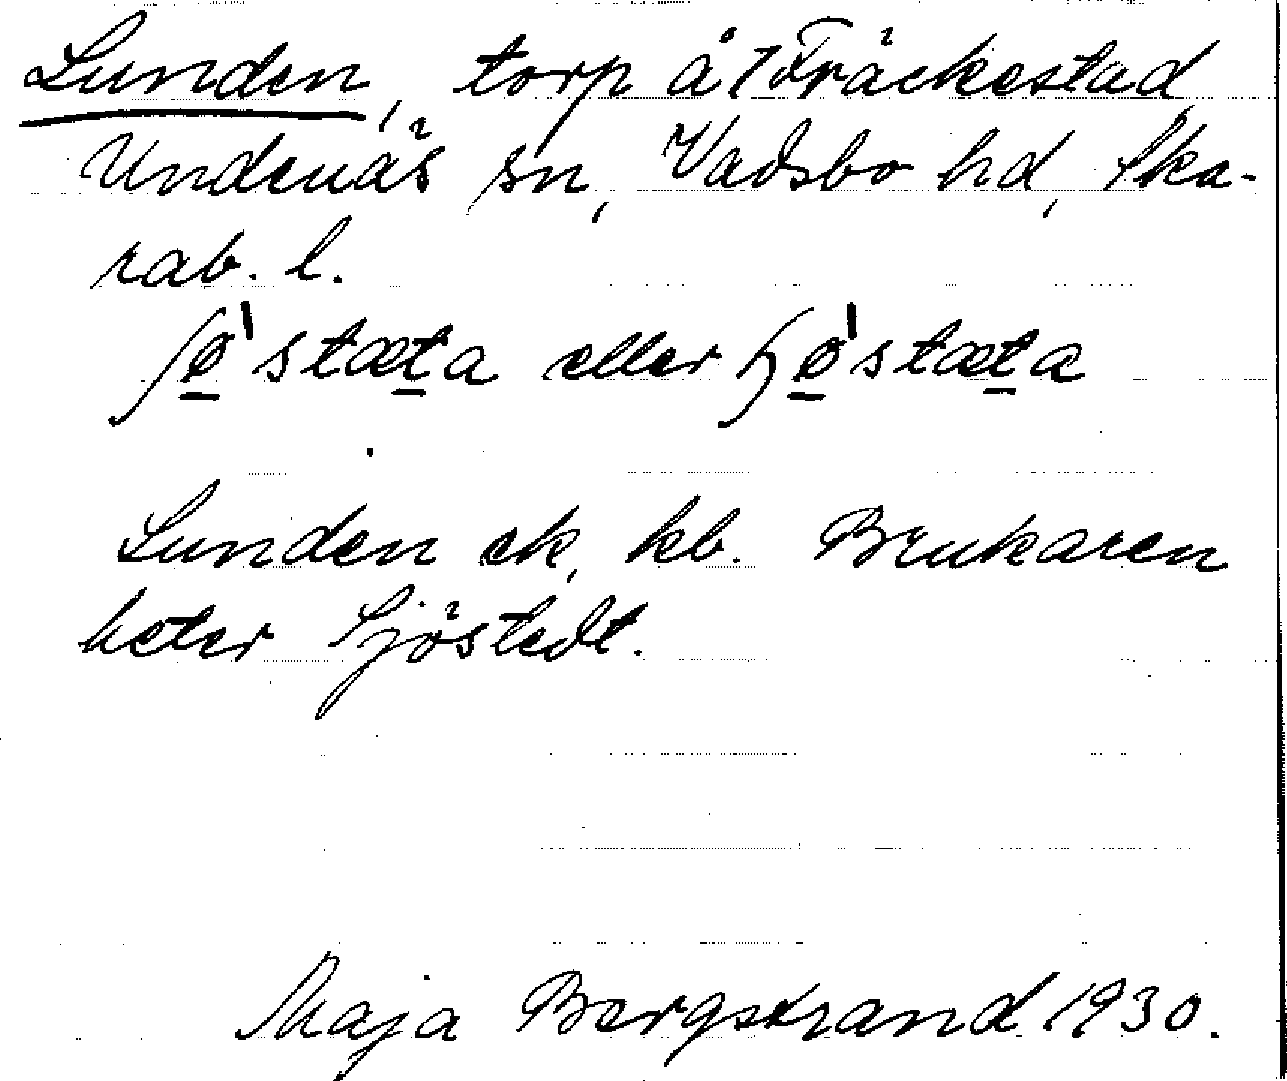 Lunden, torp å 1 Fräckestad,
Undenäs sn, Vadsbo hd, Ska-
rab. l.
ʃø̱'stæṯa eller ɧø̱'stæṯa
Lunden ek, kb. Brukaren
heter Sjöstedt.
Maja Bergstrand 1930.